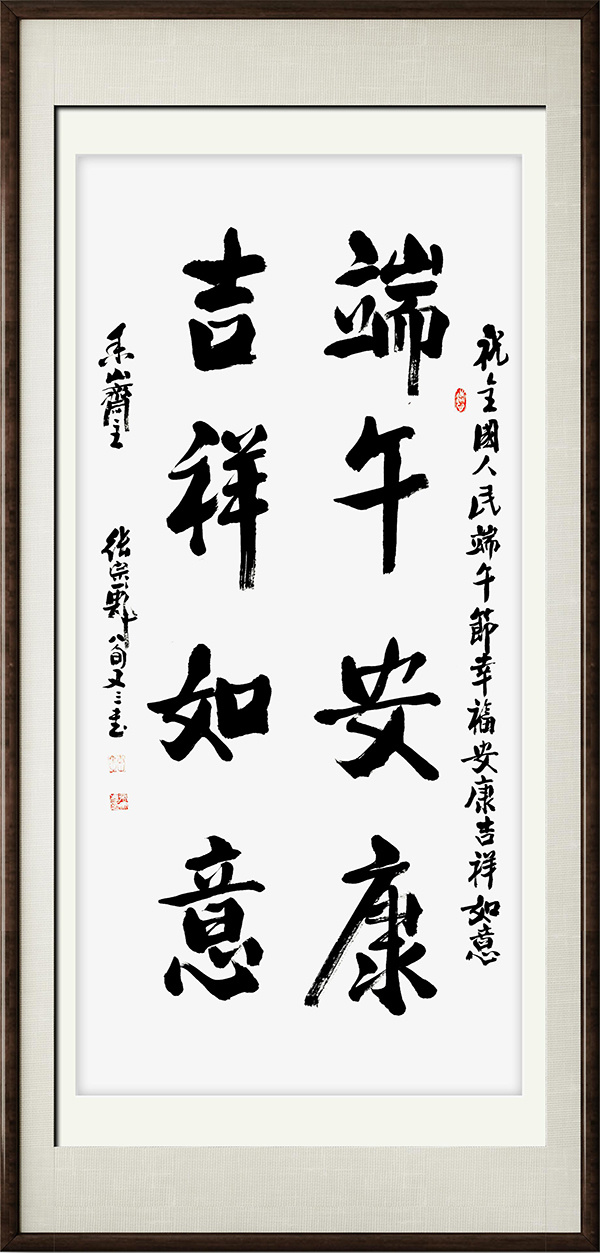 祝全國人民端午節幸福安康吉祥如意
端午安康
吉祥如意
張宗彪八旬又三書